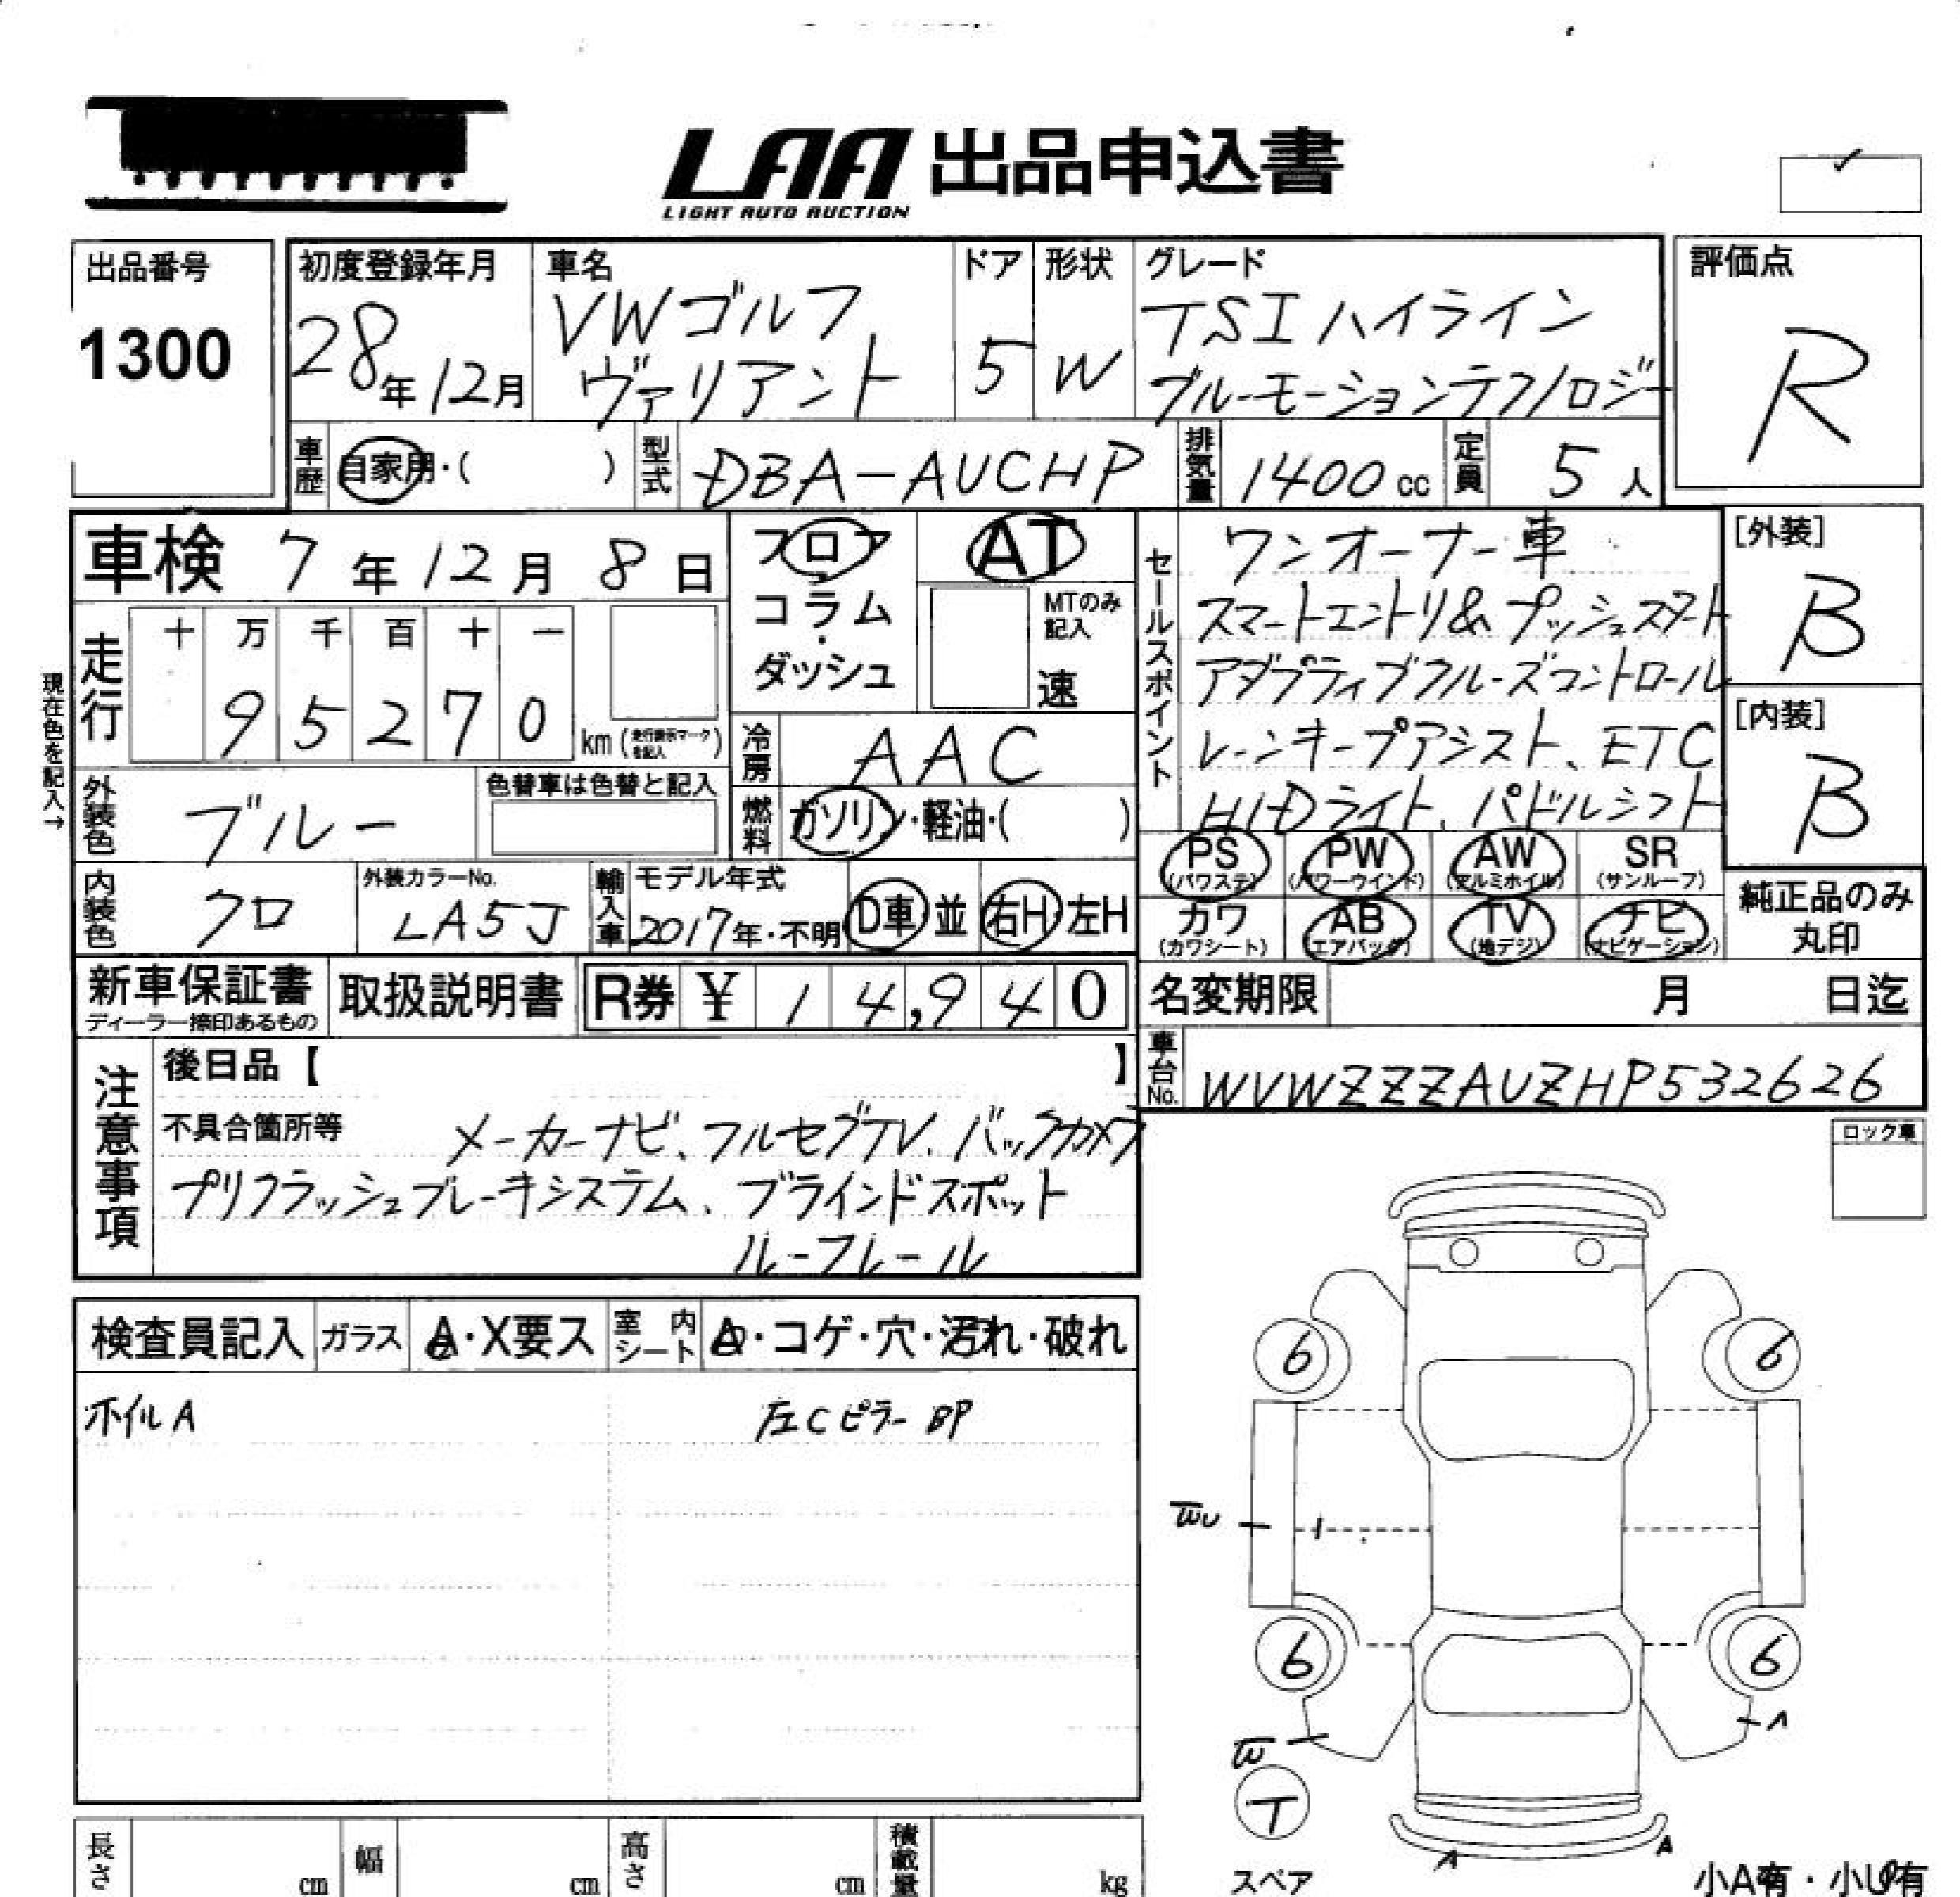 LAA 出品申込書
LIGHT AUTO AUCTION
出品番号
1300
初度登録年月
28年12月
車名
VWゴルフ
ヴァリアント
ドア
5
形状
W
グレード
TSIハイライン
ブルーモーションテクノロジー
評価点
R
車歴
自家用・( )
型式
DBA-AUCHP
排気量
1400cc
定員
5人
車検 7年12月8日
現在色を記入→
走行
十 万 千 百 十 一
9 5 2 7 0
km(走行表示マークを記入)
フロア
コラム・
ダッシュ
AT
MTのみ
記入
速
セールスポイント
ワンオーナー車
スマートエントリ&プッシュスタート
アダプティブクルーズコントロール
レーンキープアシスト、ETC
HIDライト、パドルシフト
[外装]
B
[内装]
B
外装色
ブルー
色替車は色替と記入
冷房
AAC
燃料
ガソリン・軽油・( )
内装色
クロ
外装カラーNo.
LA5J
輸入車
モデル年式
2017年・不明
D車 並
右H・左H
PS
(パワステ)
PW
(パワーウインド)
AW
(アルミホイル)
SR
(サンルーフ)
カワ
(カワシート)
AB
(エアバッグ)
TV
(地デジ)
ナビ
(ナビゲーション)
純正品のみ
丸印
新車保証書
ディーラー捺印あるもの
取扱説明書
R券 ¥ 14,940
名変期限 月 日迄
車台No.
WVWZZZAUZHP532626
注意事項
後日品【 】
不具合箇所等 メーカーナビ、フルセグTV、バックカメラ
プリクラッシュブレーキシステム、ブラインドスポット
ルーフレール
ロック車
検査員記入
ガラス
A・X要ス
室内シート
A・コゲ・穴・汚れ・破れ
ホイルA
左Cピラー BP
6 6
WU
6 6
W
A
T
スペア
A A
小A有・小U有
長さ cm
幅 cm
高さ cm
積載量 kg